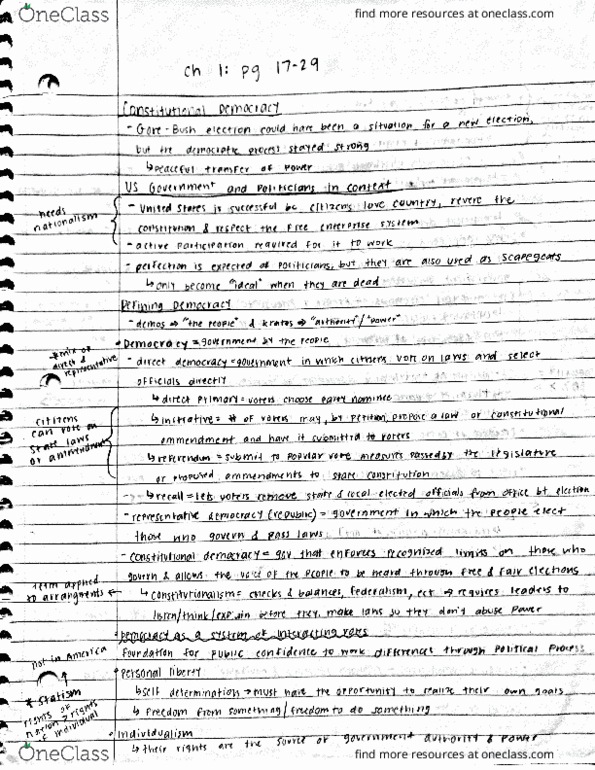 OneClass
find more resources at oneclass.com
Ch 1: pg 17-29
Constitutional Democracy
- Gore-Bush election could have been a situation for a new election,
but the democratic process stayed strong
↳ peaceful transfer of power
US Government and Politicians in context
needs nationalism
- United States is successful bc citizens love country, revere the
constitution & respect the free enterprise system
- active participation required for it to work
- perfection is expected of politicians, but they are also used as scapegoats
↳ only become "ideal" when they are dead
Defining Democracy
- demos ⇒ "the people" & kratos ⇒ "authority"/"power"
• Democracy = government by the people
*mix of direct & representative
- direct democracy = government in which citizens vote on laws and select
officials directly
↳ direct primary = voters choose party nominee
citizens can vote on state laws or ammendments
↳ initiative = # of voters may, by petition, propose a law or constitutional
ammendment and have it submitted to voters
↳ referendum = submit to popular vote measures passed by the legislature
or proposed ammendments to state constitution
↳ recall = lets voters remove state & local elected officials from office bt election
- representative democracy (republic) = government in which the people elect
those who govern & pass laws
- constitutional democracy = gov that enforces recognized limits on those who
govern & allows the voice of the people to be heard through free & fair elections
term applied to arrangments
↳ constitutionalism = checks & balances, federalism, ect → requires leaders to
listen/think/explain before they make laws so they don't abuse power
Democracy as a system of interacting
Foundation for public confidence to work differences through Political Process
not in America
* Statism
rights of nation > rights of individual
• Personal liberty
↳ self determination = must have the opportunity to realize their own goals
↳ freedom from something/freedom to do something
• Individualism
↳ their rights are the source of government authority & power
OneClass
find more resources at oneclass.com